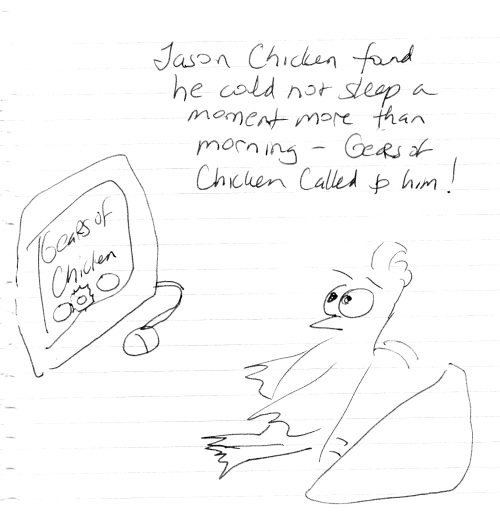 Jason Chicken found
he could not sleep a
moment more than
morning – Gears of
Chicken Called to him!
Gears of
Chicken